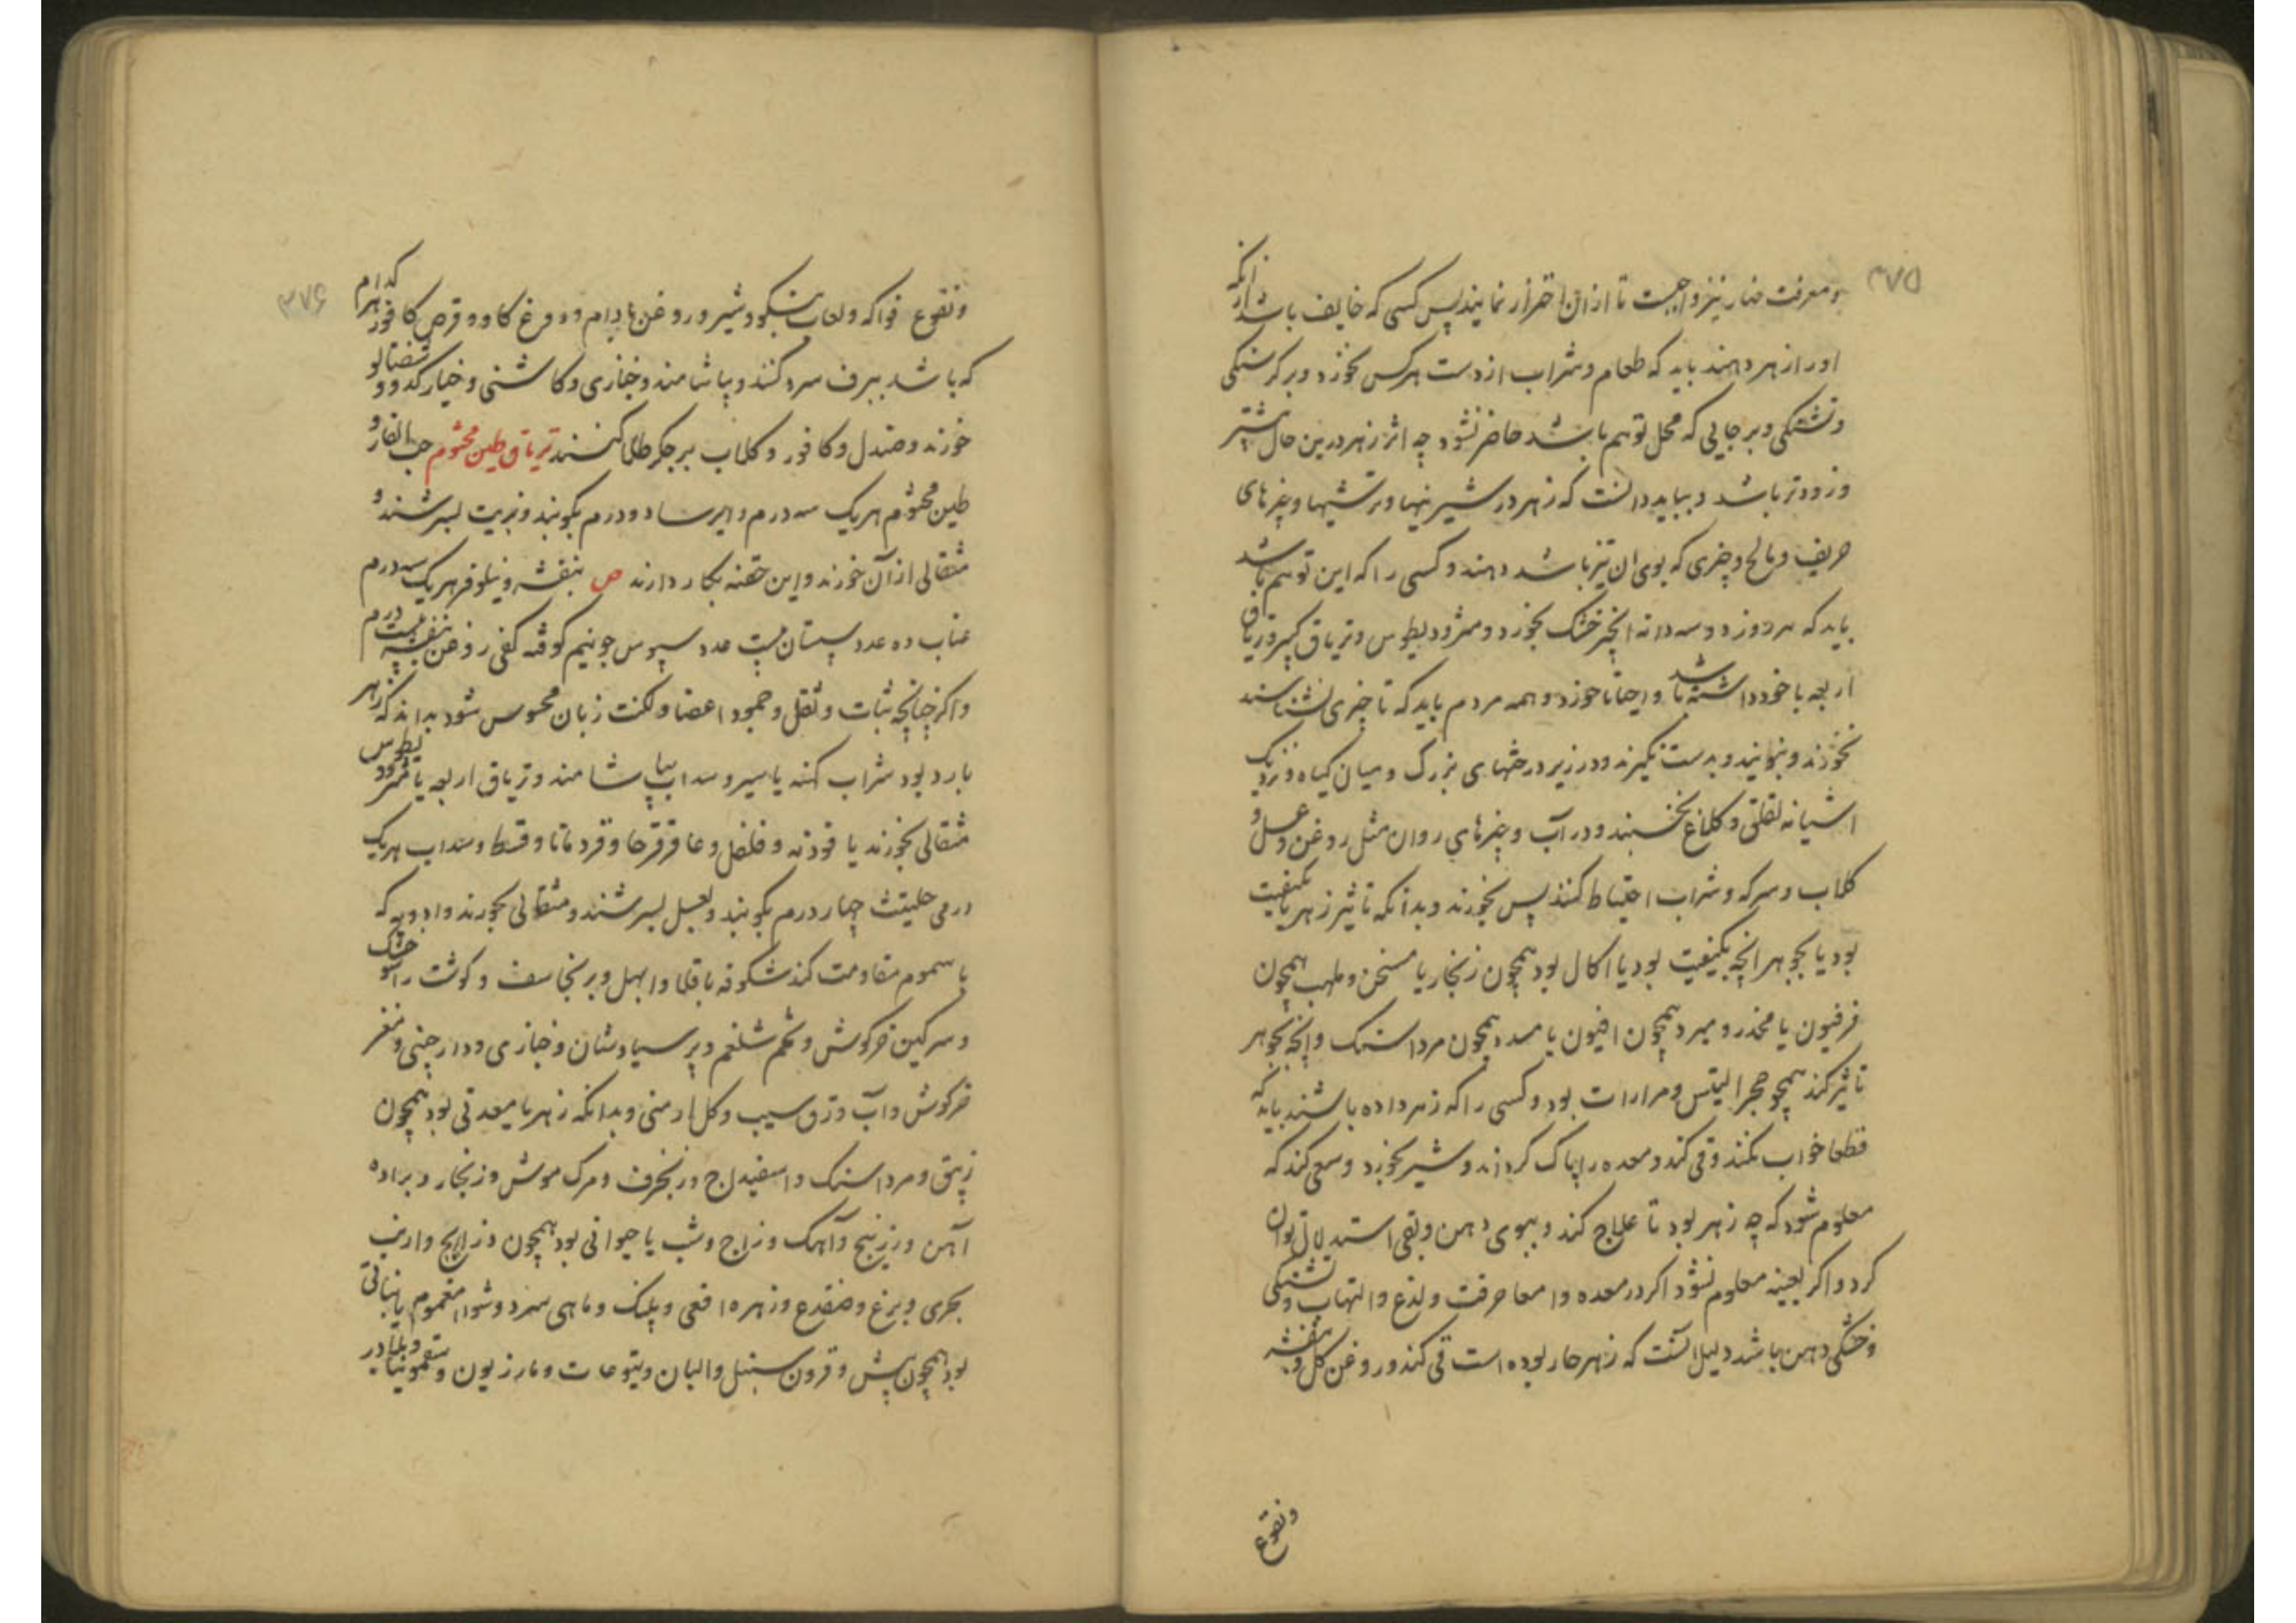 ۳۷۵
ومعرفت مضار نیز واجبست تا ازان احتراز نمایند پس کسی که خایف باشد ازانکه
اورا زهر دهند باید که طعام وشراب از دست هرکس نخورد وبر گرسنگی
وتشنگی وبر جایی که محل توهم باشد حاضر نشود چه اثر زهر درین حال بیشتر
وزودتر باشد وبباید دانست که زهر در شیرینیها وترشیها وچیزهای
حریف ومالح وچیزی که بوی ان تیز باشد دهند وکسی را که این توهم باشد
باید که هر دوز دوسه دانه انجیر خشک بخورد ومثرودیطوس وتریاق کبیر وتریاق
اربعه با خود داشته باشد واحیانا خورد وهمه مردم باید که تا چیزی نشناسند
نخورند ونبویند وبدست نگیرند ودر زیر درختهای بزرگ ومیان گیاه ونزدیک
اشیانه لقلق وکلاغ نخسبند ودر آب وچیزهای روان مثل روغن وعسل و
گلاب وسرکه وشراب احتیاط کنند پس بخورند وبدانکه تاثیر زهر یا بکیفیت
بود یا بجوهر انچه بکیفیت بود یا اکال بود همچون زنجار یا مسخن وملهب همچون
فرفیون یا مخدر ومبرد همچون افیون یا مسدد همچون مرداسنک وانچه بجوهر
تاثیر کند همچو حجر التیس ومرارات بود وکسی را که زهر داده باشند باید که
قطعا خواب نکند وقی کند ومعده را پاک گرداند وشیر بخورد وسعی کند که
معلوم شود که چه زهر بود تا علاج کند وببوی دهن وبقی استدلال توان
کرد واگر بعینه معلوم نشود اگر در معده وامعا حرقت ولذع والتهاب وتشنگی
وخشکی دهن باشد دلیل آنست که زهر حار بوده است قی کند وروغن گل وبنفشه
ونقوع
۳۷۶
ونقوع فواکه ولعاب بنکو وشیر وروغن بادام ودوغ گاو وقرص کافور هر کدام
که باشد ببرف سرد کنند وبیاشامند وخبازی وکاشنی وخیار کدو وشفتالو
خورند وصندل وکافور وگلاب بر جگر طلا کنند تریاق طین مختوم حب الغار و
طین مختوم هریک سه درم وایرسا دو درم بکوبند وبزیت بسرشند و
مثقالی از آن خورند واین حقنه بکار دارند ص بنفشه ونیلوفر هریک سه درم
عناب ده عدد سپستان بیست عدد سپوس جو نیم کوفته کفی روغن بنفشه بیست درم
واگر چنانچه ثبات وثقل وجمود اعضا ولکنت زبان محسوس شود بدانند که زهر
بارد بود شراب کهنه یا سیر وسداب بیاشامند وتریاق اربعه یا مثرودیطوس
مثقالی بخورند یا فودنه وفلفل وعاقرقرحا وقردمانا وقسط وسداب هریک
درمی حلتیت چهار درم بکوبند وبعسل بسرشند ومثقالی بخورند وادویه که
با سموم مقاومت کند شکوفه باقلا وابهل وبرنجاسف وگوشت راسو خشک
وسرگین خرگوش وتخم شلغم وپرسیاوشان وخبازی ودارچینی ومغز
خرگوش وآب ورق سیب وگل ارمنی وبدانکه زهر یا معدنی بود همچون
زیبق ومرداسنک واسفیداج وزنجرف ومرگ موش وزنجار وبراده
آهن وزرنیخ وآهک وزاج وشب یا حیوانی بود همچون ذراریح وارنب
بحری وبزغ وضفدع وزهره افعی وپلنگ وماهی سرد وشواء مغموم یا نباتی
بود همچون بیش وقرون سنبل والبان ویتوعات ومازریون وسقمونیا وبلادر